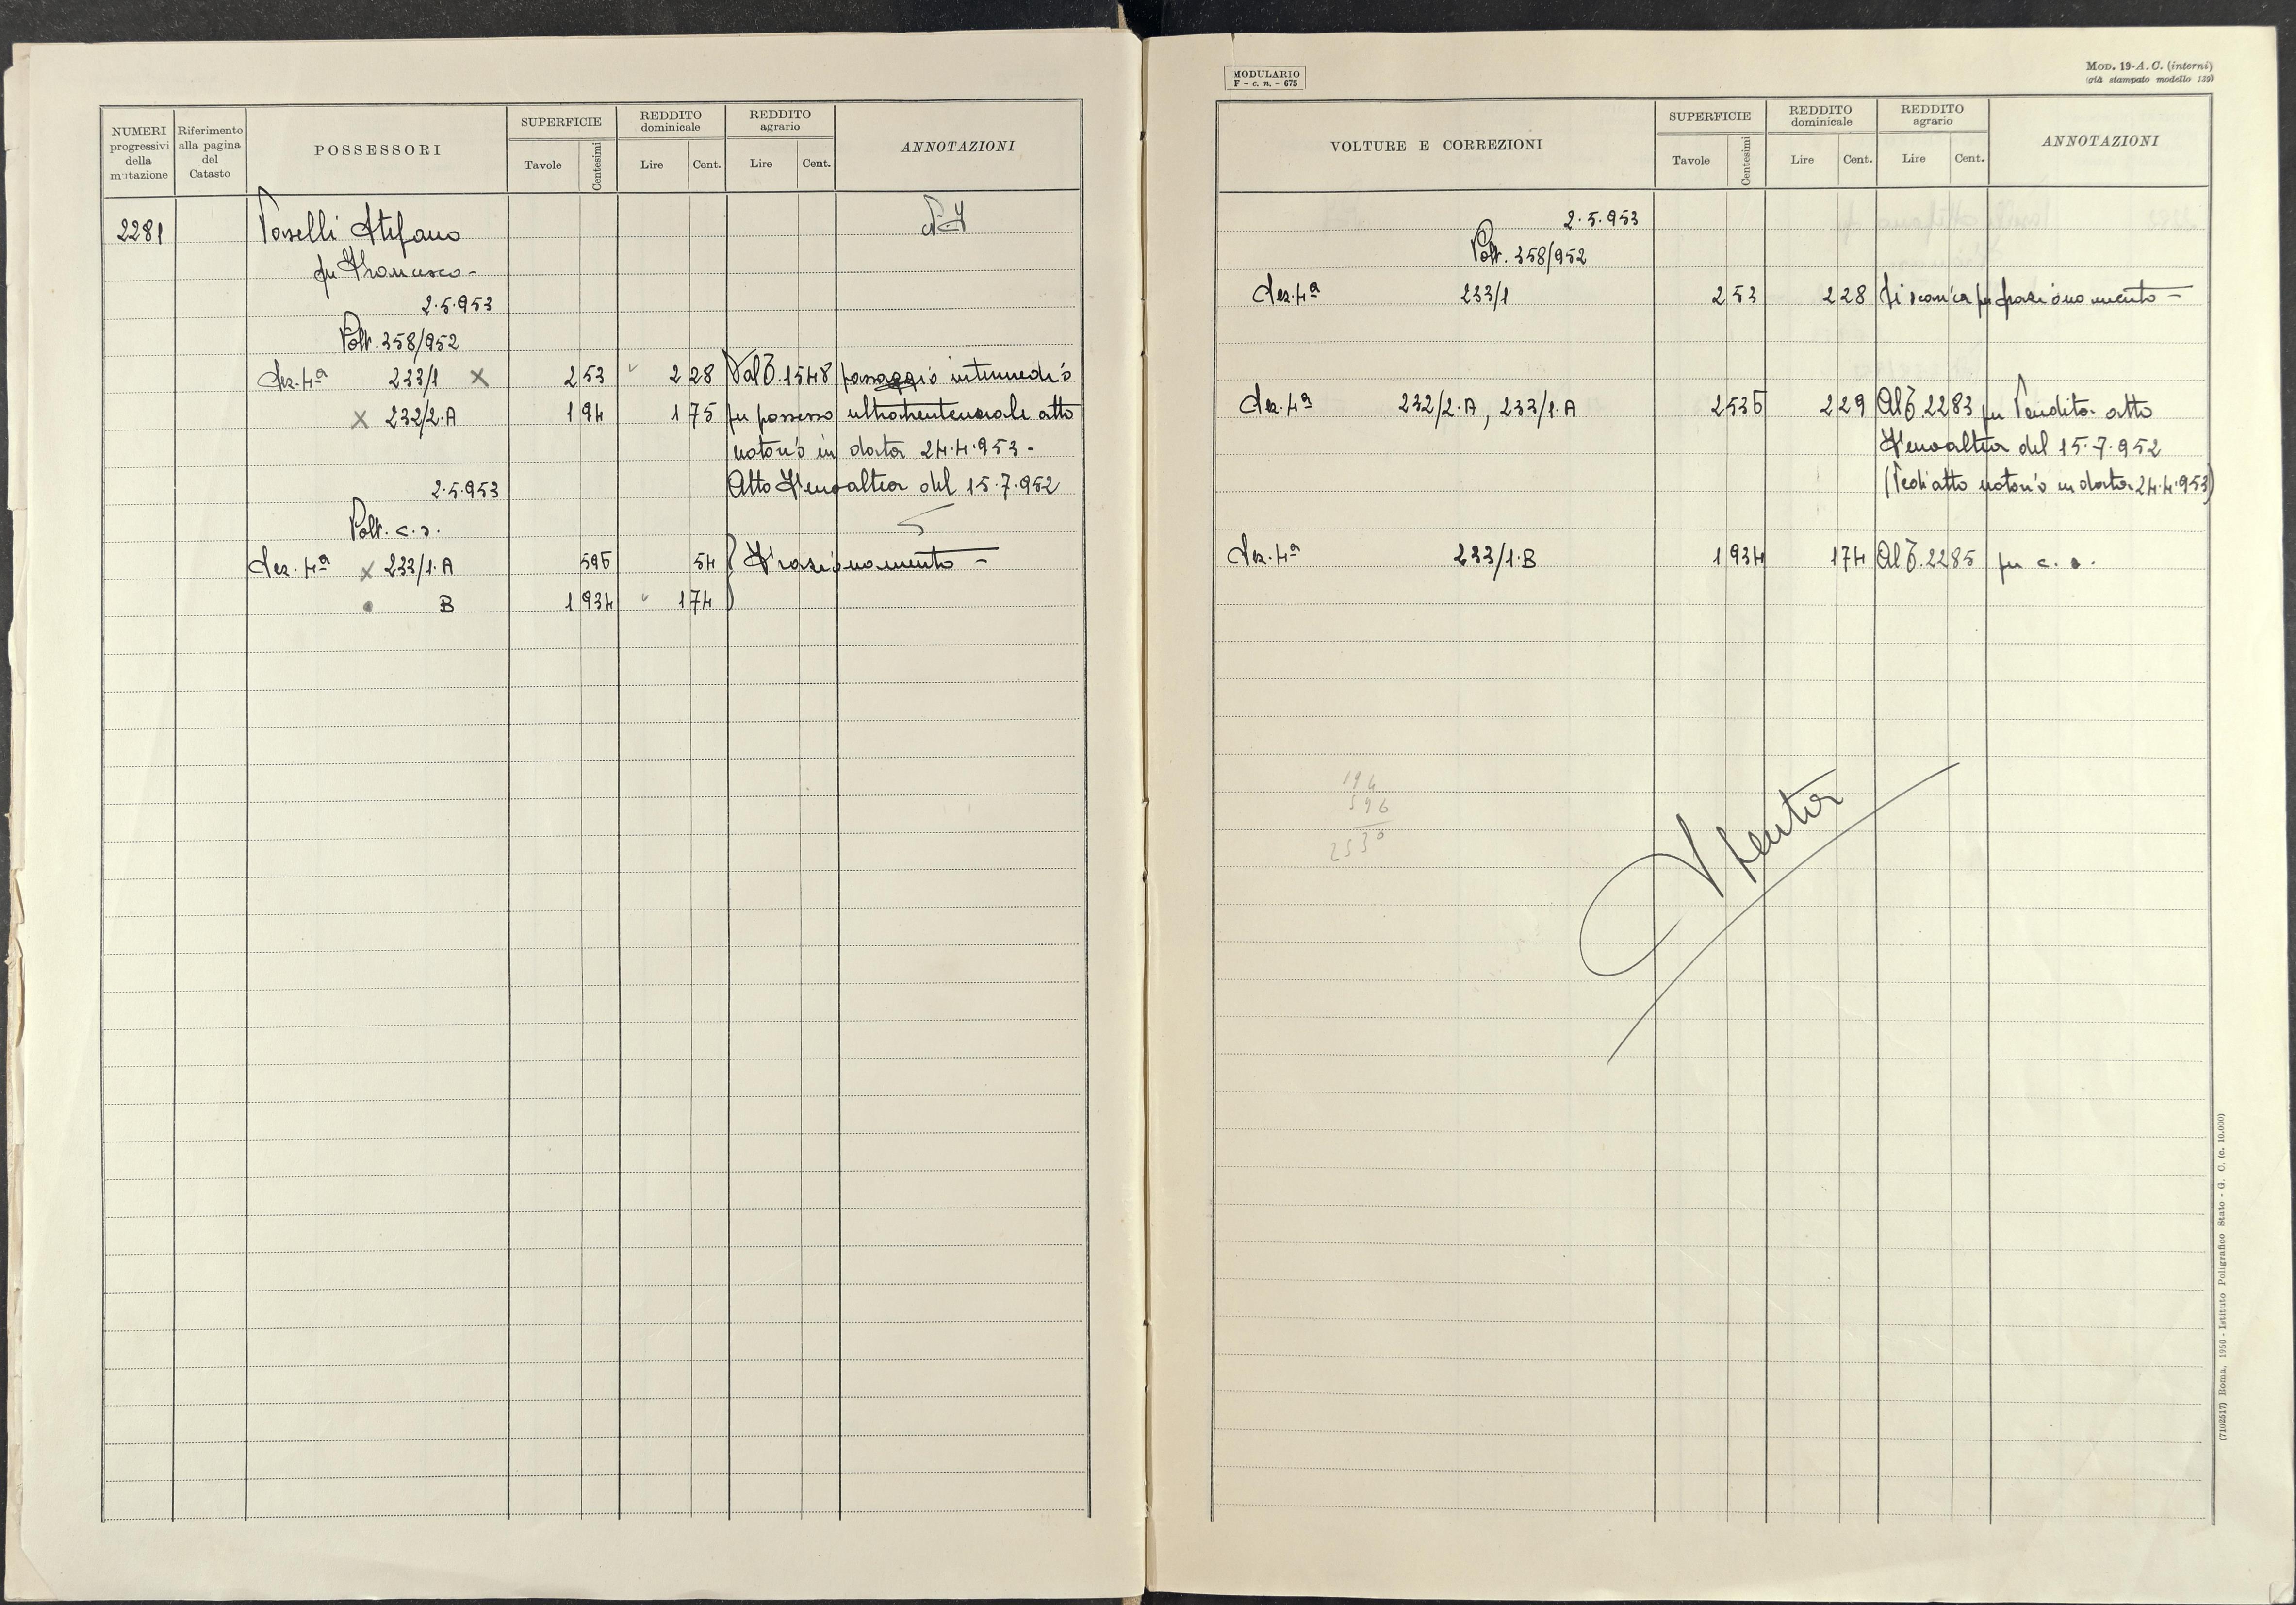 NUMERI progressivi della mutazione
Riferimento alla pagina del Catasto
POSSESSORI
SUPERFICIE
Tavole
Centesimi
REDDITO dominicale
Lire
Cent.
REDDITO agrario
Lire
Cent.
ANNOTAZIONI
2281 Stefano
fu
2.5.953
Volt. 358/952
Sez. 4ª 233/1 X 2 53 2 28 Dal P. 1548 passaggio intermedio
X 232/2.A 1 94 1 75 per possesso ultratrentennale atto
notorio in data 24.4.953 -
2.5.953 Atto del 15.7.952
Volt. c.s.
Sez. 4ª X 233/1.A 596 54 Frazionamento -
B 1 934 1 74
MODULARIO
F - c. n. - 675
MOD. 19-A. C. (interni)
(già stampato modello 139)
VOLTURE E CORREZIONI
SUPERFICIE
Tavole
Centesimi
REDDITO dominicale
Lire
Cent.
REDDITO agrario
Lire
Cent.
ANNOTAZIONI
2.5.953
Volt. 358/952
Sez. 4ª 233/1 2 53 2 28 Si scarica per frazionamento -
Sez. 4ª 232/2.A, 233/1.A 2 536 2 29 Al P. 2283 per Vendita atto
del 15.7.952
(Vedi atto notorio in data 24.4.953)
Sez. 4ª 233/1.B 1 934 1 74 Al P. 2285 per c.s.
194
596
2536
Spenta
(7102517) Roma, 1950 - Istituto Poligrafico Stato - G. C. (c. 10.000)